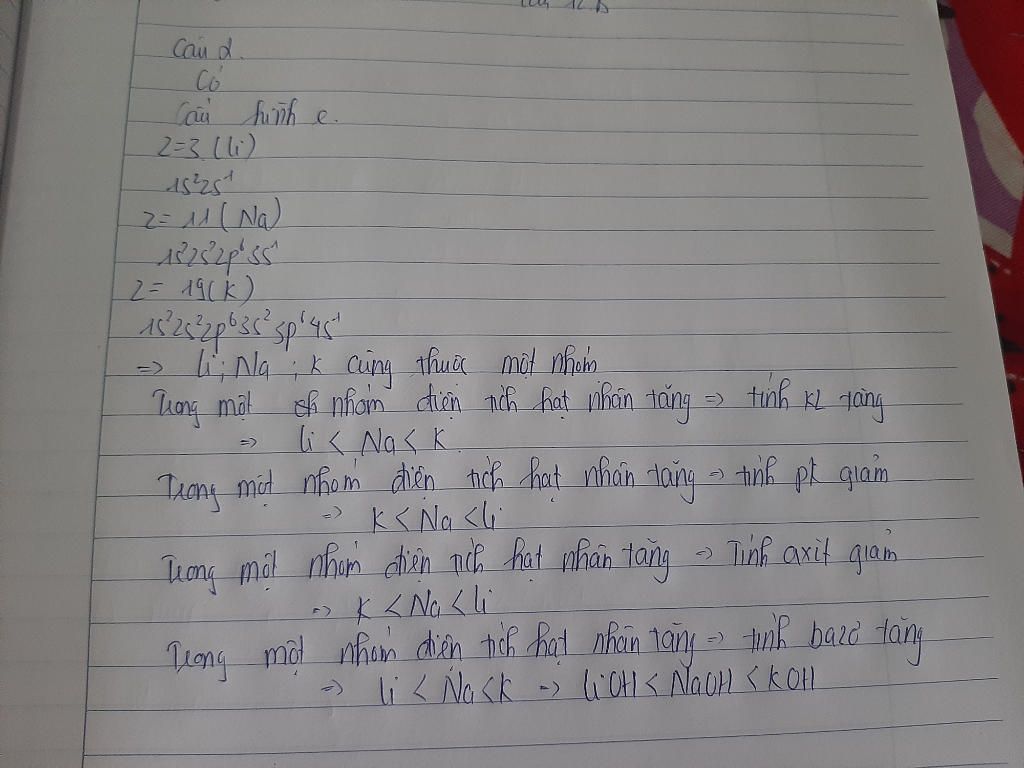 Câu 2.
Có
Cấu hình e.
Z=3 (Li)
1s²2s¹
Z = 11 (Na)
1s²2s²2p⁶3s¹
Z = 19(K)
1s²2s²2p⁶3s²3p⁶4s¹
=> Li; Na; K cùng thuộc một nhóm
Trong một nhóm điện tích hạt nhân tăng => tính KL tăng
=> Li < Na < K
Trong một nhóm điện tích hạt nhân tăng => tính pk giảm
=> K < Na < Li
Trong một nhóm điện tích hạt nhân tăng => Tính axit giảm
=> K < Na < Li
Trong một nhóm điện tích hạt nhân tăng => tính bazơ tăng
=> Li < Na < K => LiOH < NaOH < KOH